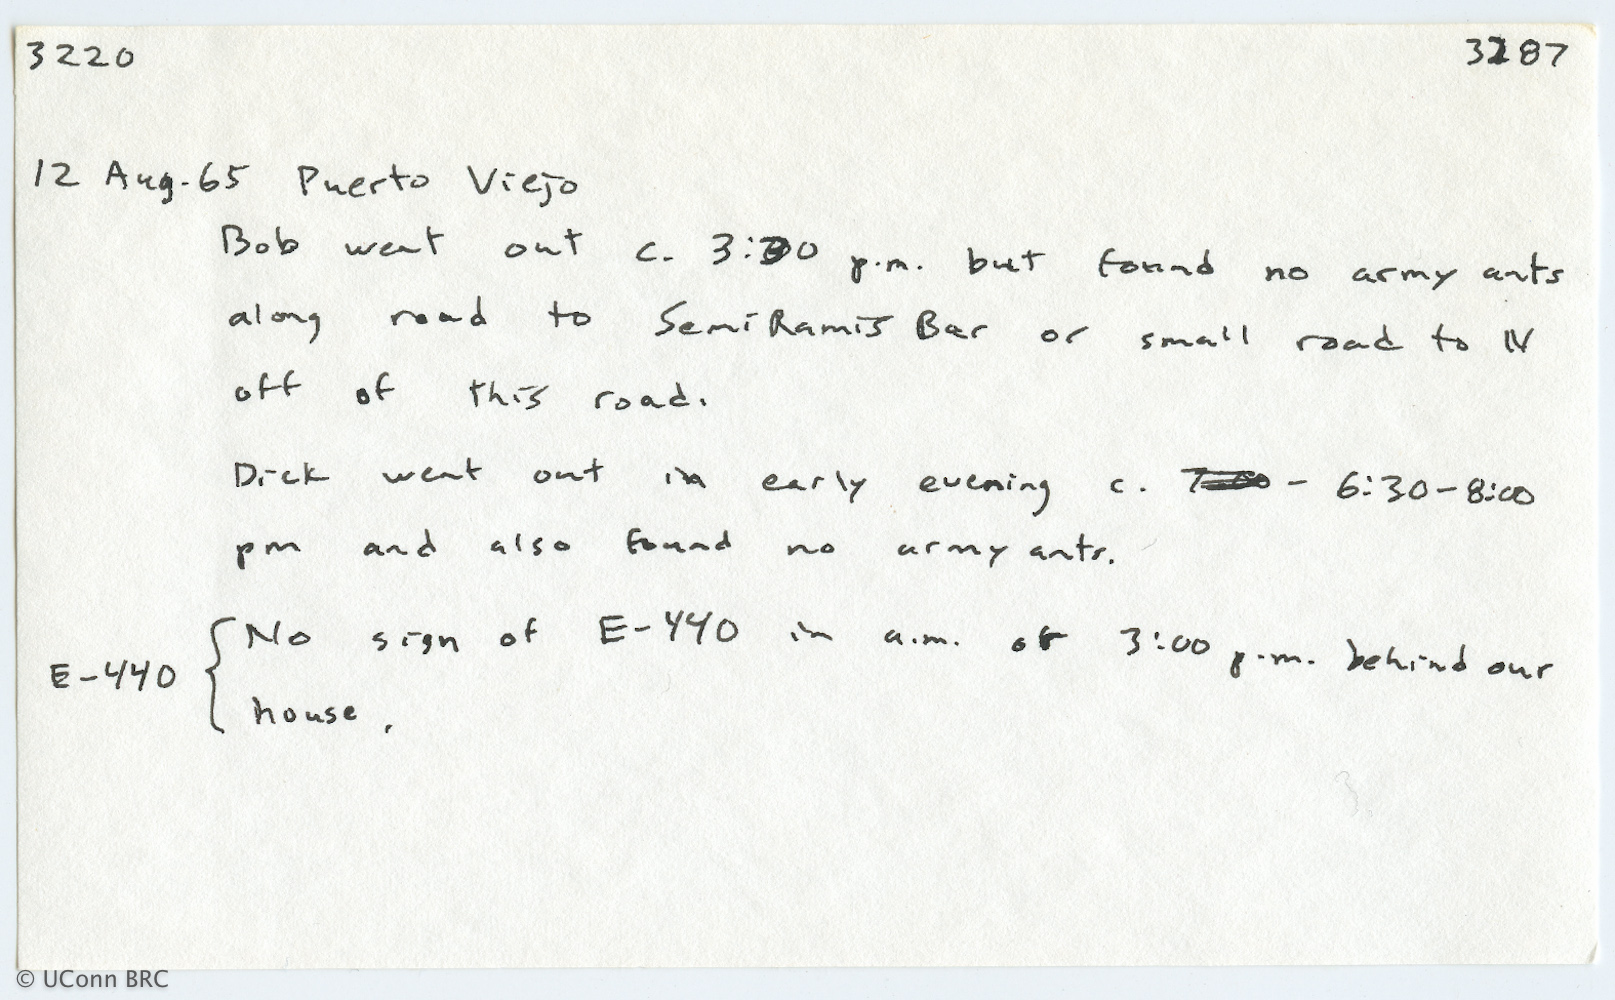 3220 3287
12 Aug. 65 Puerto Viejo
Bob went out c. 3:30 p.m. but found no army ants
along road to SemiRamis Bar or small road to N
off of this road.
Dick went out in early evening c. 7:00 - 6:30-8:00
pm and also found no army ants.
E-440 { No sign of E-440 in a.m. or 3:00 p.m. behind our
house.
© UConn BRC